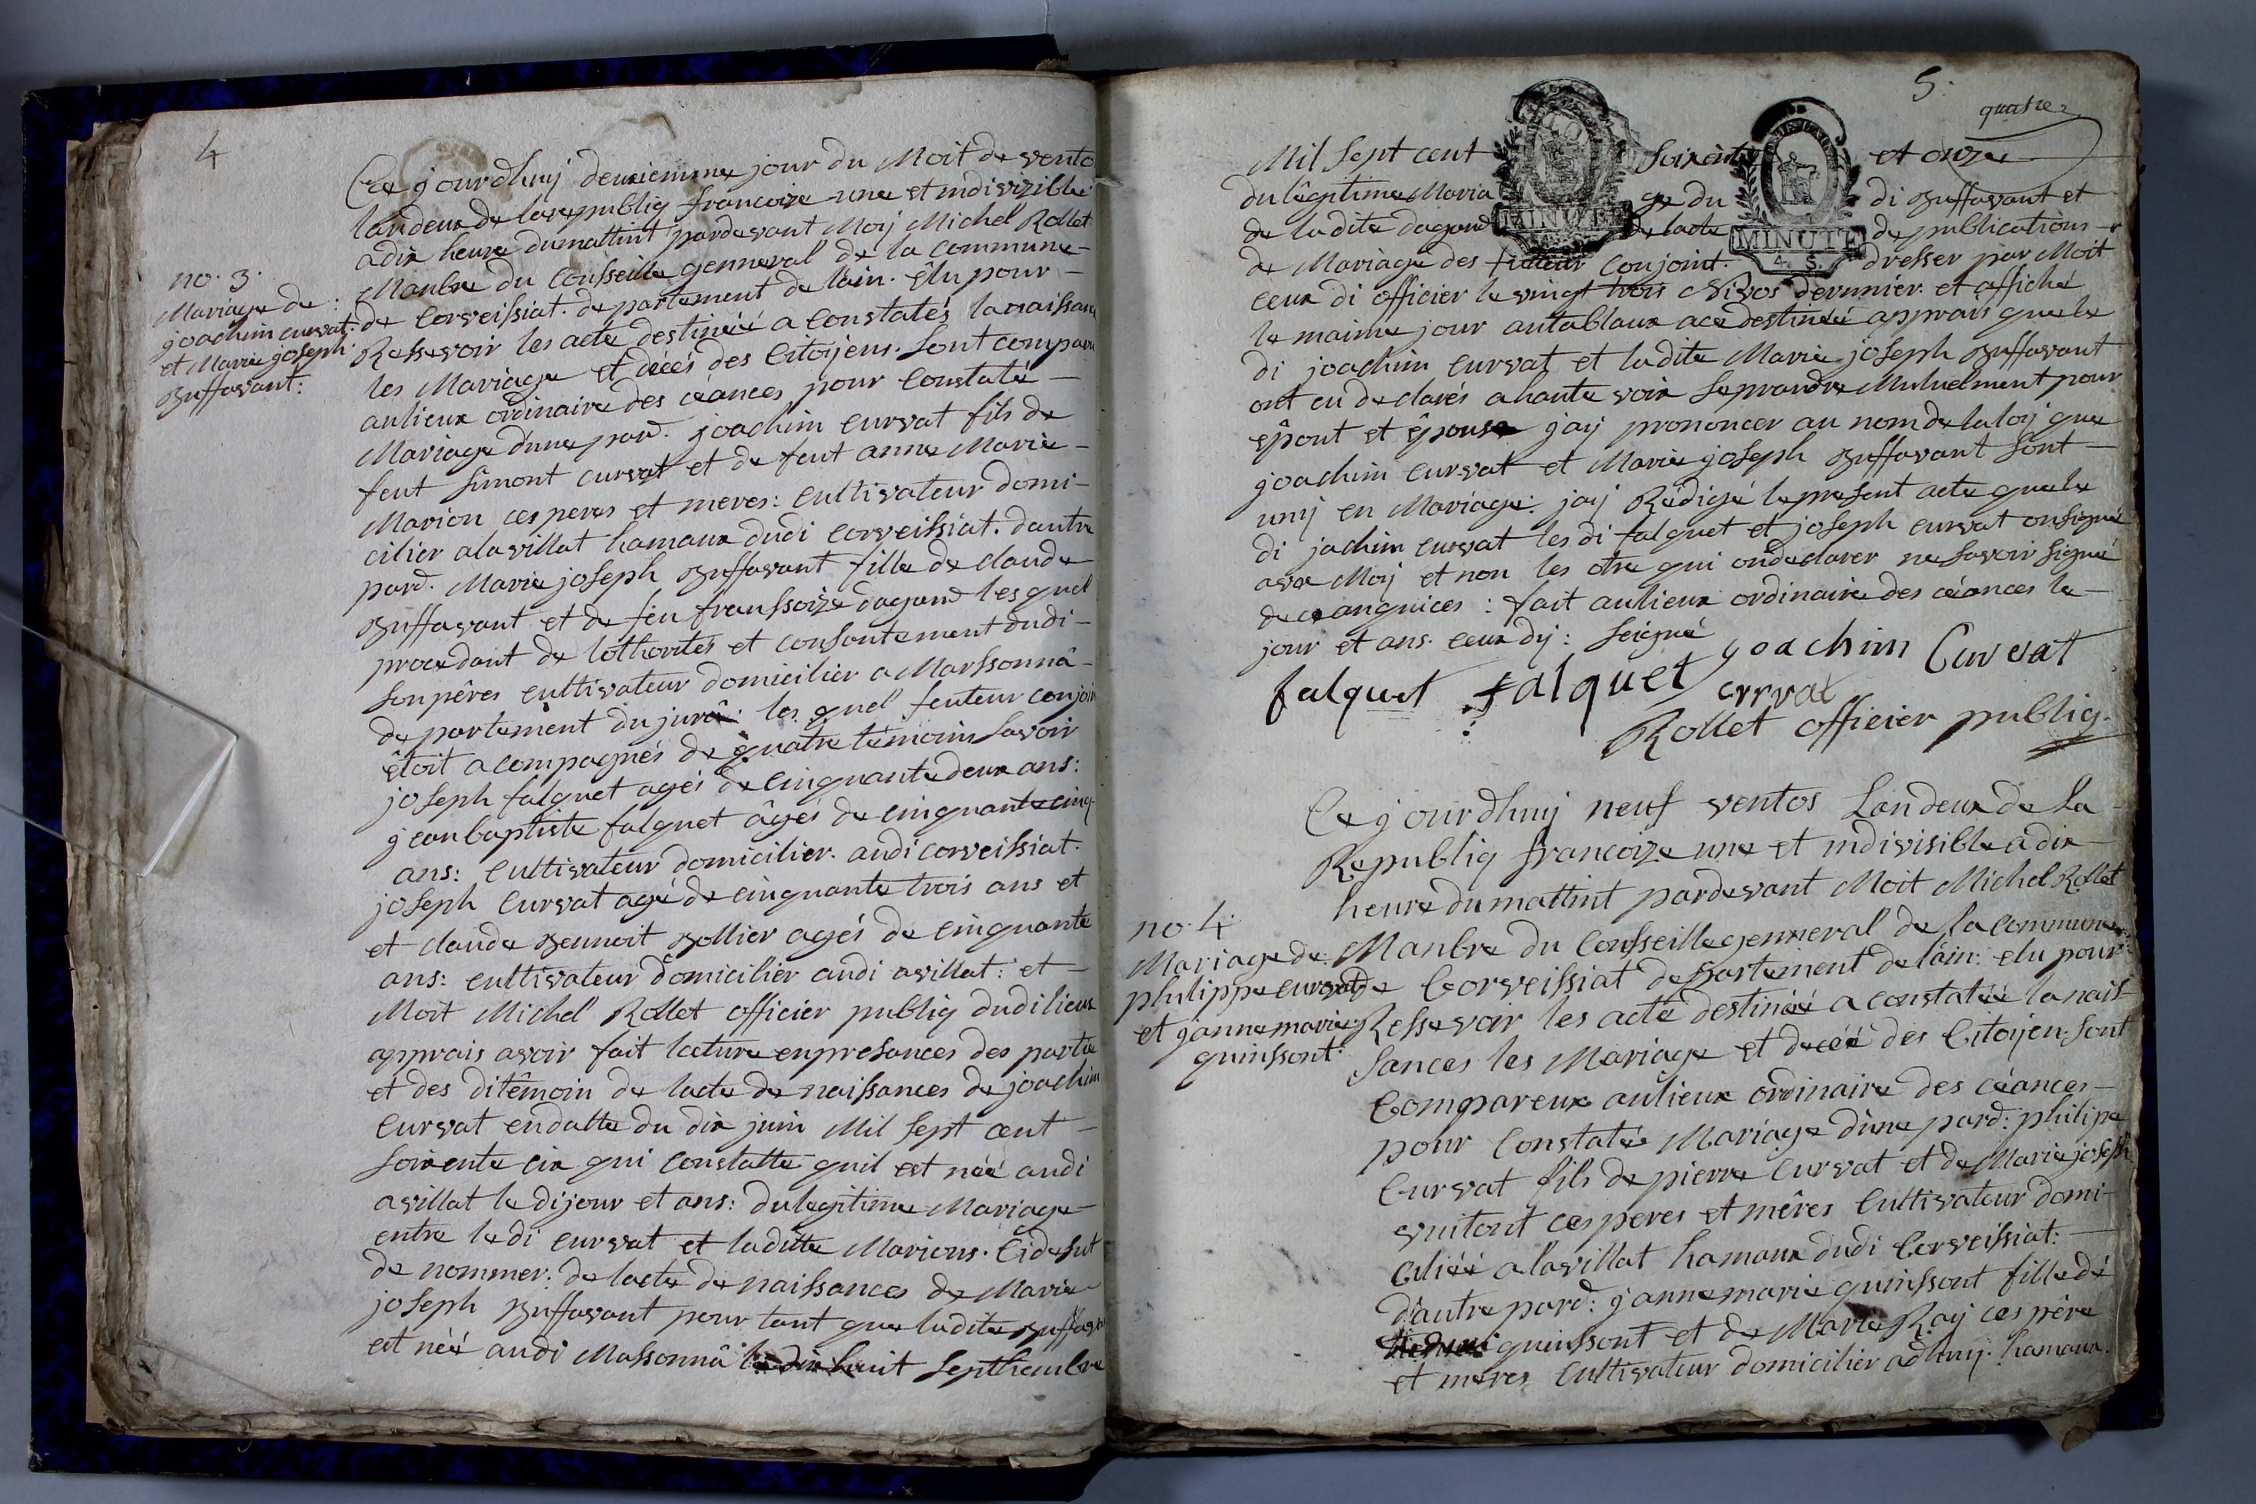 4
Ce jourdhuij deuxiemme jour du Moit de vento
landeux de la republiq francoize une et indivizible
a dix heure du mattint pardevant Moij Michel Rollet
Manbre du Consseille genneral de la Commune
no. 3.
Mariage de :
joachim curvat.
et Marie joseph.
Buffavant:
de Corveissiat. de partement de lain. elu pour
Ressevoir les acte destineéé a constatés la naissance
les Mariage et décés des Citoijens. Sont comparu
aulieux ordinaire des céances pour Constaté
Mariage dune pard. joachim Curvat fils de
feut Simont Curvat et de feut anne Marie
Marion ces peres et meres: Cultivateur domi-
cilier alavillat hamaux dudi Corveissiat. dautre
pard. Marie joseph Buffavant fille de claude
Buffavant et de feu franssoize dagand les quel
procedant de lothorités et consontement dudi
Son pêres Cultivateur domicilier a Marssonnâ
de partement du jurâ: les quel feuteur conjoin
êtoit acompagnés de quatre témoins Savoir
joseph falquet agés de Cinquante deux ans:
jean baptiste falquet âgés de cinquante cinq
ans: Cultivateur domicilier. audi corveissiat.
joseph Curvat agé de cinquante trois ans et
et claude Bennoit Bollier agés de Cinquante
ans: Cultivateur domicilier audi avillat: et
Moit Michel Rollet officier publiq dudi lieux
apprais avoir fait lecture enpresances des partie
et des ditêmoin de lacte de naissances de joachim
Curvat endatte du dix juin Mil Sept cent
soixente cix qui constatte quil est néé audi
avillat le dijour et ans: dulegitime Mariage
entre le di curvat et ladite Marions. Cidesut
de nommer: de lacte de naissances de Marie
joseph Buffavant pour tant que ladite Buffavan
est néé audi Massonnâ le dix huit Septhembre
5.
quatre
Mil Sept cent Soixente et onze
du lêgitime Mariage du di Buffavant et
de ladite dagand de lacte de publications
MINUTE
MINUTE
4. S.
de Mariage des futeur Conjoint. dresser par Moit
ceux di officier le vingt trois Nivos dernnier. et affiché
le maime jour autablaux ace destinéé apprais que le
di joachim Curvat et ladite Marie joseph Buffavant
ont eu de clarés ahaute voix Seprandre Mutuelment pour
êpout et êpouse jaij prononcer au nom de laloij que
joachim Curvat et Marie joseph Buffavant Sont
unij en Mariage: jaij Rêdigé le present acte quele
di jachim Curvat les di falquet et joseph Curvat onsigné
avec Moij et non les otre qui ondeclarer ne Savoir Signé
de ce anquices: fait aulieux ordinaire des céances le
jour et ans. ceux dij: Seigné
joachim Curvat
falquet falquet
curvat
Rollet officier publiq.
Ce jourdhuij neuf ventos Landeux de la
Republiq francoize une et indivisible a dix
heure du mattint pardevant Moit Michel Rollet
no. 4
Mariage de
philippe curvat
et jannemarie
quinssont.
Manbre du Consseille genneral de la Commune
de Corveissiat departement de láin: elu pour
Ressevoir les acte destinéé a constatéé la nais
sances les Mariage et decéé des Citoijen. Sont
Compareux aulieux ordinaire des céances
pour Constatée Mariage dune pard: philipe
Curvat fils de pierre Curvat et de Marie joseph
vuitont ces peres et mêres Cultivateur domi-
ciliéé alavillat hamaux dudi Corveissiat:
dautre pard: jannemarie quinssont fille dé
quinssont et de Marie Raij ces père
et meres Cultivateur domicilier adhuij. hamaux.